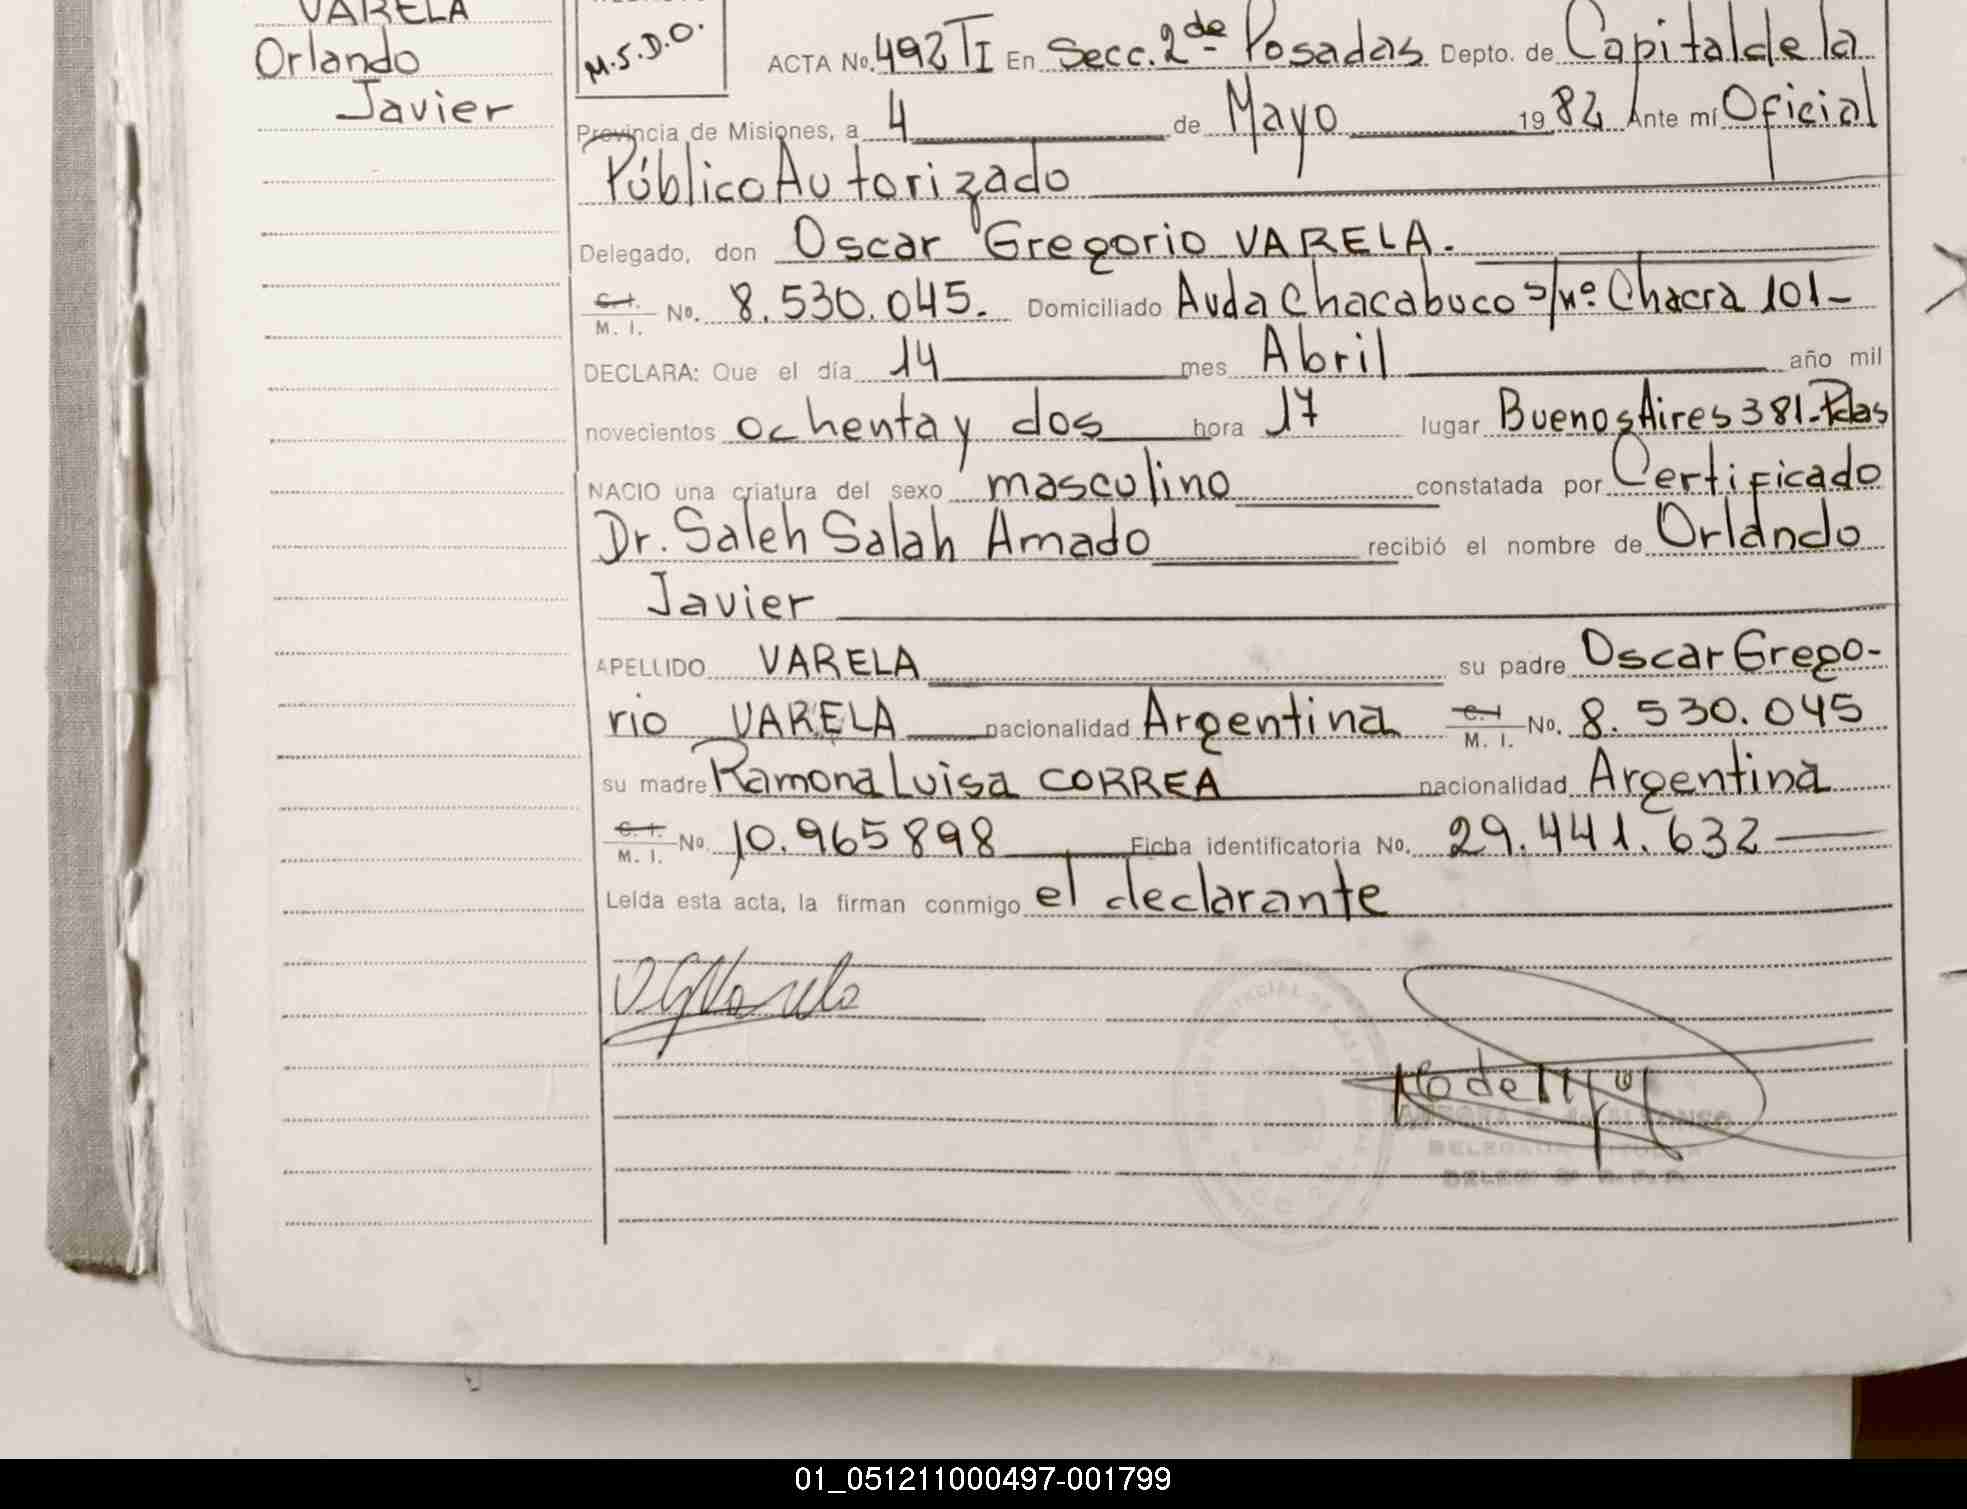 VARELA
Orlando
Javier
M.S.D.O.
ACTA No. 492 TI En Secc. 2de Posadas Depto. de Capital de la
Provincia de Misiones, a 4 de Mayo 1982 Ante mí Oficial
Público Autorizado
Delegado, don Oscar Gregorio VARELA.
C. I. M. I. No. 8.530.045. Domiciliado Avda Chacabuco s/nº Chacra 101-
DECLARA: Que el día 14 mes Abril año mil
novecientos ochenta y dos hora 17 lugar Buenos Aires 381-Pdas
NACIO una criatura del sexo masculino constatada por Certificado
Dr. Saleh Salah Amado recibió el nombre de Orlando
Javier
APELLIDO VARELA su padre Oscar Grego-
rio VARELA nacionalidad Argentina C. I. M. I. No. 8.530.045
su madre Ramona Luisa CORREA nacionalidad Argentina
C. I. M. I. No. 10.965898 Ficha identificatoria No. 29.441.632
Leída esta acta, la firman conmigo el declarante
OGVarela
01_051211000497-001799